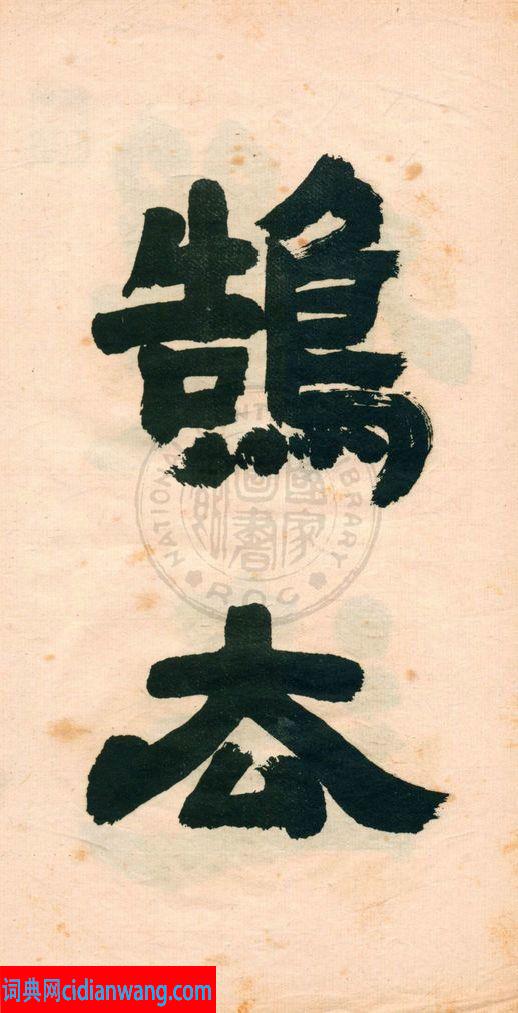 鵠
厺
國家
圖書
館
NATIONAL CENTRAL LIBRARY
R.O.C
词典网cidianwang.com